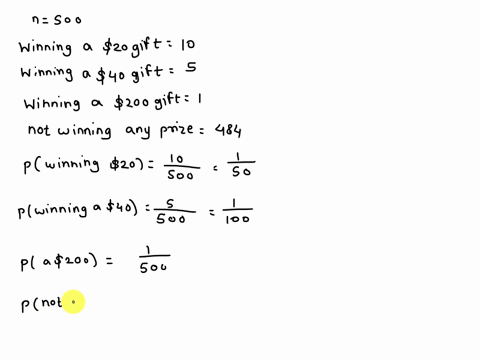 n=500
Winning a $20 gift = 10
Winning a $40 gift = 5
Winning a $200 gift = 1
not winning any prize = 484
P(winning $20) = 10/500 = 1/50
P(winning a $40) = 5/500 = 1/100
P( a $200) = 1/500
P(not